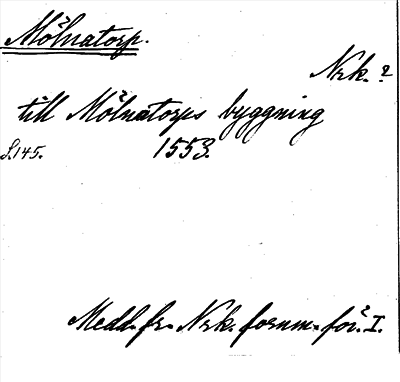 Mölnatorp.
Nrk. ?
till Mölnatorps byggning
S.145. 1553.
Medd. fr. Nrk. fornm. för. I.